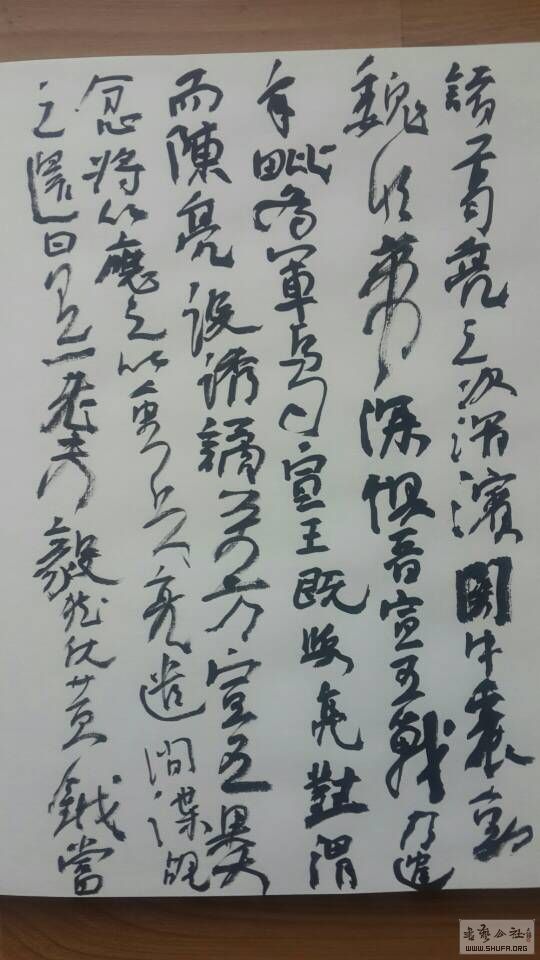 諸葛亮之次渭濱關中震動
魏明帝深懼晉宣王戰乃遣
辛毗為軍司馬宣王既與亮對渭
而陳亮設誘譎萬方宣王果大
忿將欲應之以重兵亮遣間諜覘
之還曰有一老夫毅然仗黃鉞當
书艺公社
WWW.SHUFA.ORG